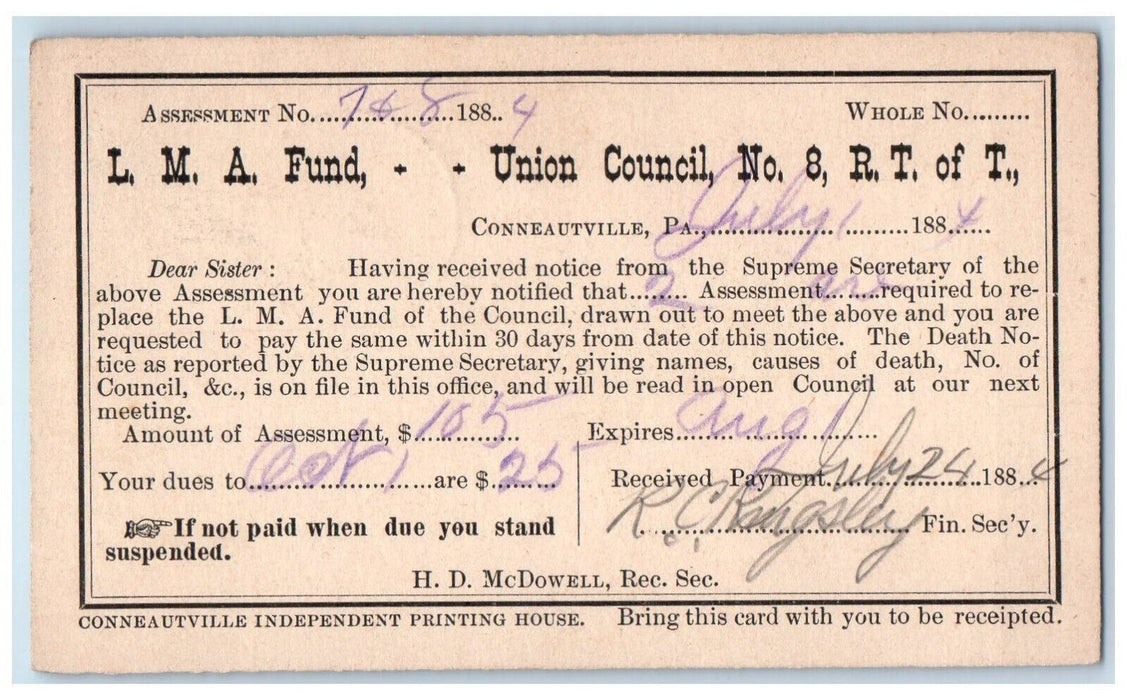 ASSESSMENT No. 7 & 8 1884 WHOLE NO.
L. M. A. Fund, - - Union Council, No. 8, R. T. of T.,
CONNEAUTVILLE, PA., July 1 1884
Dear Sister : Having received notice from the Supreme Secretary of the
above Assessment you are hereby notified that 2 Assessment are required to re-
place the L. M. A. Fund of the Council, drawn out to meet the above and you are
requested to pay the same within 30 days from date of this notice. The Death No-
tice as reported by the Supreme Secretary, giving names, causes of death, No. of
Council, &c., is on file in this office, and will be read in open Council at our next
meeting.
Amount of Assessment, $ 105 Expires Aug 1
Your dues to Oct 1 are $ 25 Received Payment July 24 1884
R. C. Kingsley Fin. Sec'y.
☞ If not paid when due you stand
suspended.
H. D. McDOWELL, Rec. Sec.
CONNEAUTVILLE INDEPENDENT PRINTING HOUSE. Bring this card with you to be receipted.